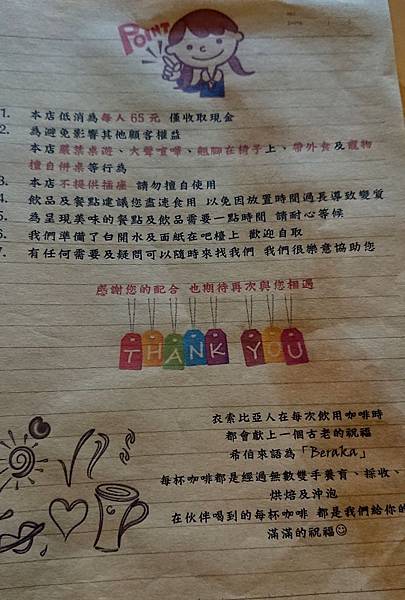 POINT
1. 本店低消為每人 65 元 僅收取現金
2. 為避免影響其他顧客權益
本店嚴禁桌遊、大聲喧嘩、翹腳在椅子上、帶外食及寵物
擅自併桌等行為
3. 本店不提供插座 請勿擅自使用
4. 飲品及餐點建議您盡速食用 以免因放置時間過長導致變質
5. 為呈現美味的餐點及飲品需要一點時間 請耐心等候
6. 我們準備了白開水及面紙在吧檯上 歡迎自取
7. 有任何需要及疑問可以隨時來找我們 我們很樂意協助您
感謝您的配合 也期待再次與您相遇
THANK YOU
衣索比亞人在每次飲用咖啡時
都會獻上一個古老的祝福
希伯來語為「Beraka」
每杯咖啡都是經過無數雙手養育、採收、
烘焙及沖泡
在伙伴喝到的每杯咖啡 都是我們給你的
滿滿的祝福☺